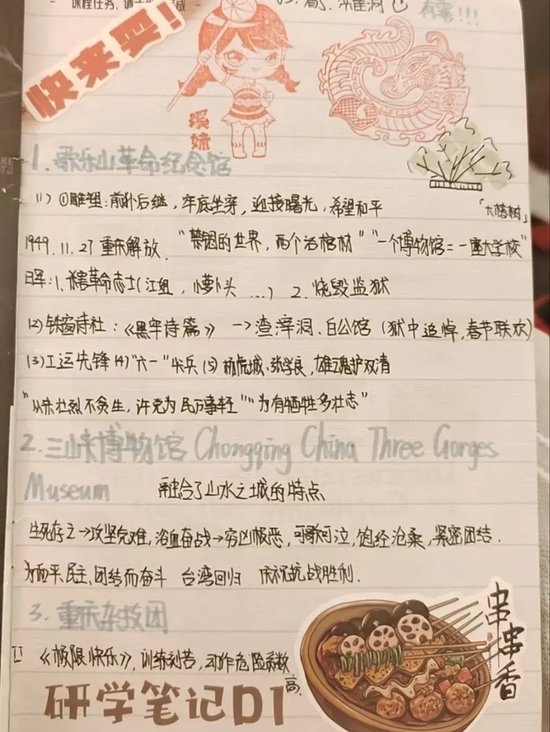 快来耍！
有雾!!!
溪妹
1. 歌乐山革命纪念馆
「大榕树」
(1) ①雕塑：前仆后继，牢底坐穿，迎接曙光，希望和平
1949.11.27 重庆解放. "禁锢的世界，两个活棺材" "一个博物馆＝一重大学校"
日军：1. 杀害革命志士（江姐，小萝卜头 …）  2. 烧毁监狱
(2) 铁窗诗社：《黑牢诗篇》 → 渣滓洞、白公馆（狱中追悼，春节联欢）
(3) 工运先锋 (4) "六一"兵 (5) 杨虎城、张学良，雄魂护双清
"从来壮烈不贪生，许党为民万事轻" "为有牺牲多壮志"
2. 三峡博物馆 Chongqing China Three Gorges
Museum  融合了山水之城的特点
生死存亡→攻坚克难，浴血奋战→穷凶极恶，可歌可泣，饱经沧桑，紧密团结.
为和平、民主、团结而奋斗  台湾回归  庆祝抗战胜利.
3. 重庆杂技团
《极限快乐》，训练刻苦，动作危险系数高.
串串香
研学笔记D1